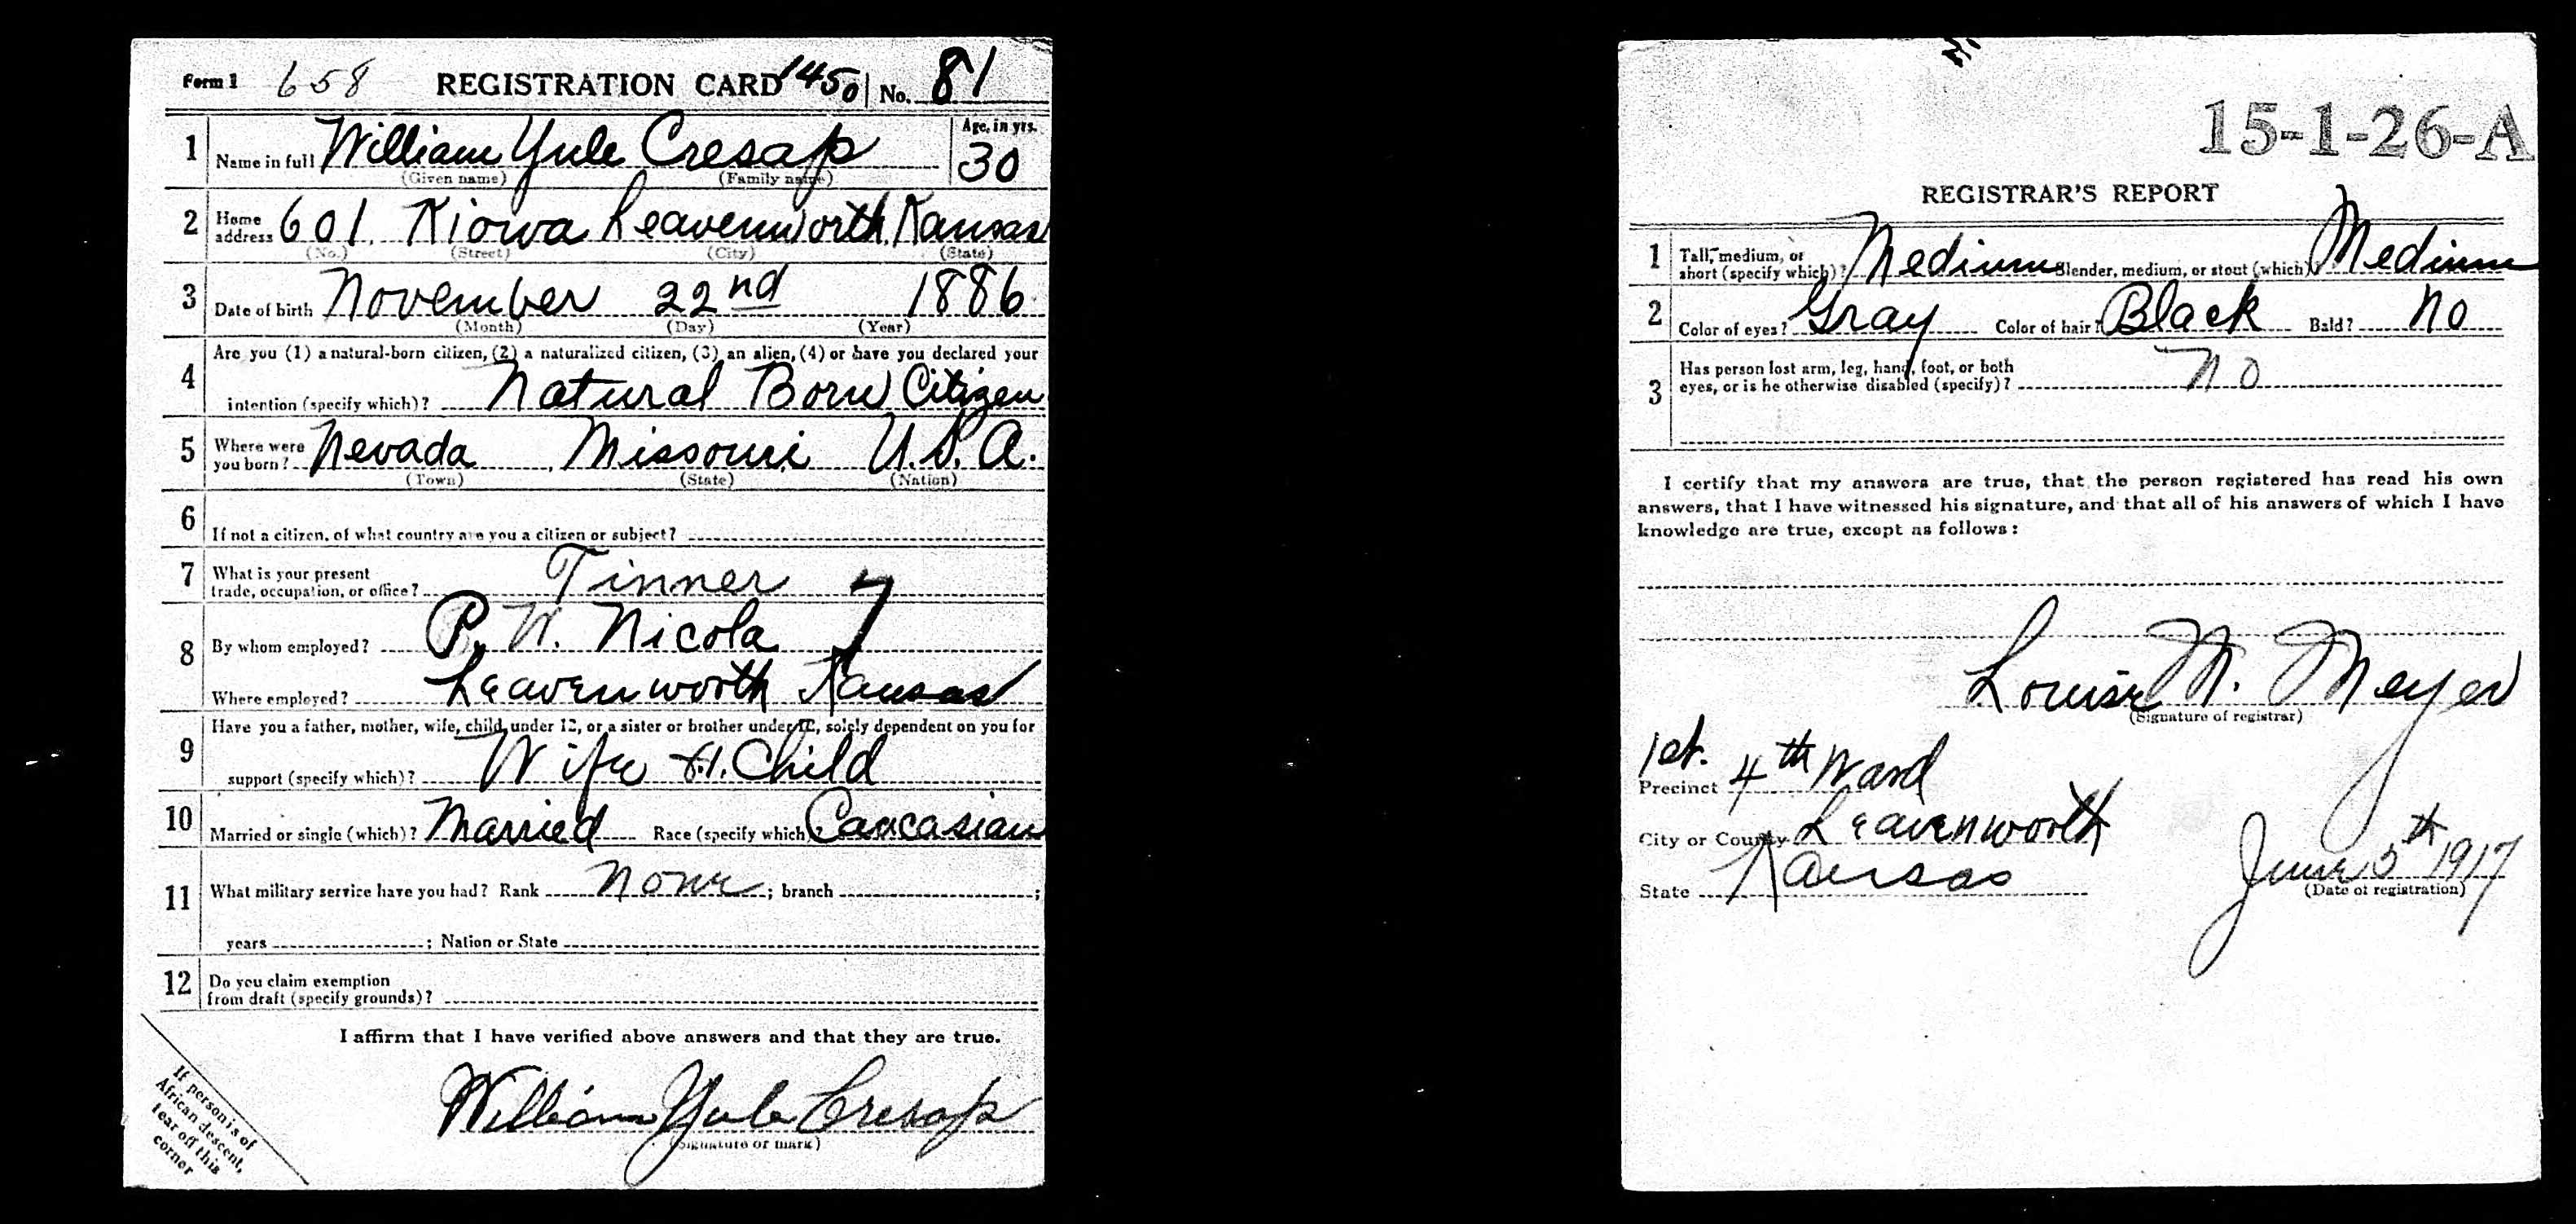 Form 1 658 REGISTRATION CARD 1450 No. 81
1 Name in full William Yule Cresap Age, in yrs. 30
(Given name) (Family name)
2 Home address 601 Kiowa Leavenworth, Kansas
(No.) (Street) (City) (State)
3 Date of birth November 22nd 1886
(Month) (Day) (Year)
4 Are you (1) a natural-born citizen, (2) a naturalized citizen, (3) an alien, (4) or have you declared your
intention (specify which)? Natural Born Citizen
5 Where were you born? Nevada, Missouri U.S.A.
(Town) (State) (Nation)
6 If not a citizen, of what country are you a citizen or subject?
7 What is your present
trade, occupation, or office? Tinner 4
8 By whom employed? P. W. Nicola
Where employed? Leavenworth Kansas
9 Have you a father, mother, wife, child under 12, or a sister or brother under 12, solely dependent on you for
support (specify which)? Wife & 1. Child
10 Married or single (which)? Married Race (specify which)? Caucasian
11 What military service have you had? Rank None; branch ;
years ; Nation or State
12 Do you claim exemption
from draft (specify grounds)?
I affirm that I have verified above answers and that they are true.
William Yule Cresap
(Signature or mark)
If person is of
African descent,
tear off this
corner
15-1-26-A
REGISTRAR'S REPORT
1 Tall, medium, or
short (specify which)? Medium Slender, medium, or stout (which)? Medium
2 Color of eyes? Gray Color of hair? Black Bald? No
3 Has person lost arm, leg, hand, foot, or both
eyes, or is he otherwise disabled (specify)? No
I certify that my answers are true, that the person registered has read his own
answers, that I have witnessed his signature, and that all of his answers of which I have
knowledge are true, except as follows:
Louise N. Meyer
(Signature of registrar)
1st.
Precinct 4th Ward
City or County Leavenworth
State Kansas June 5th 1917
(Date of registration)